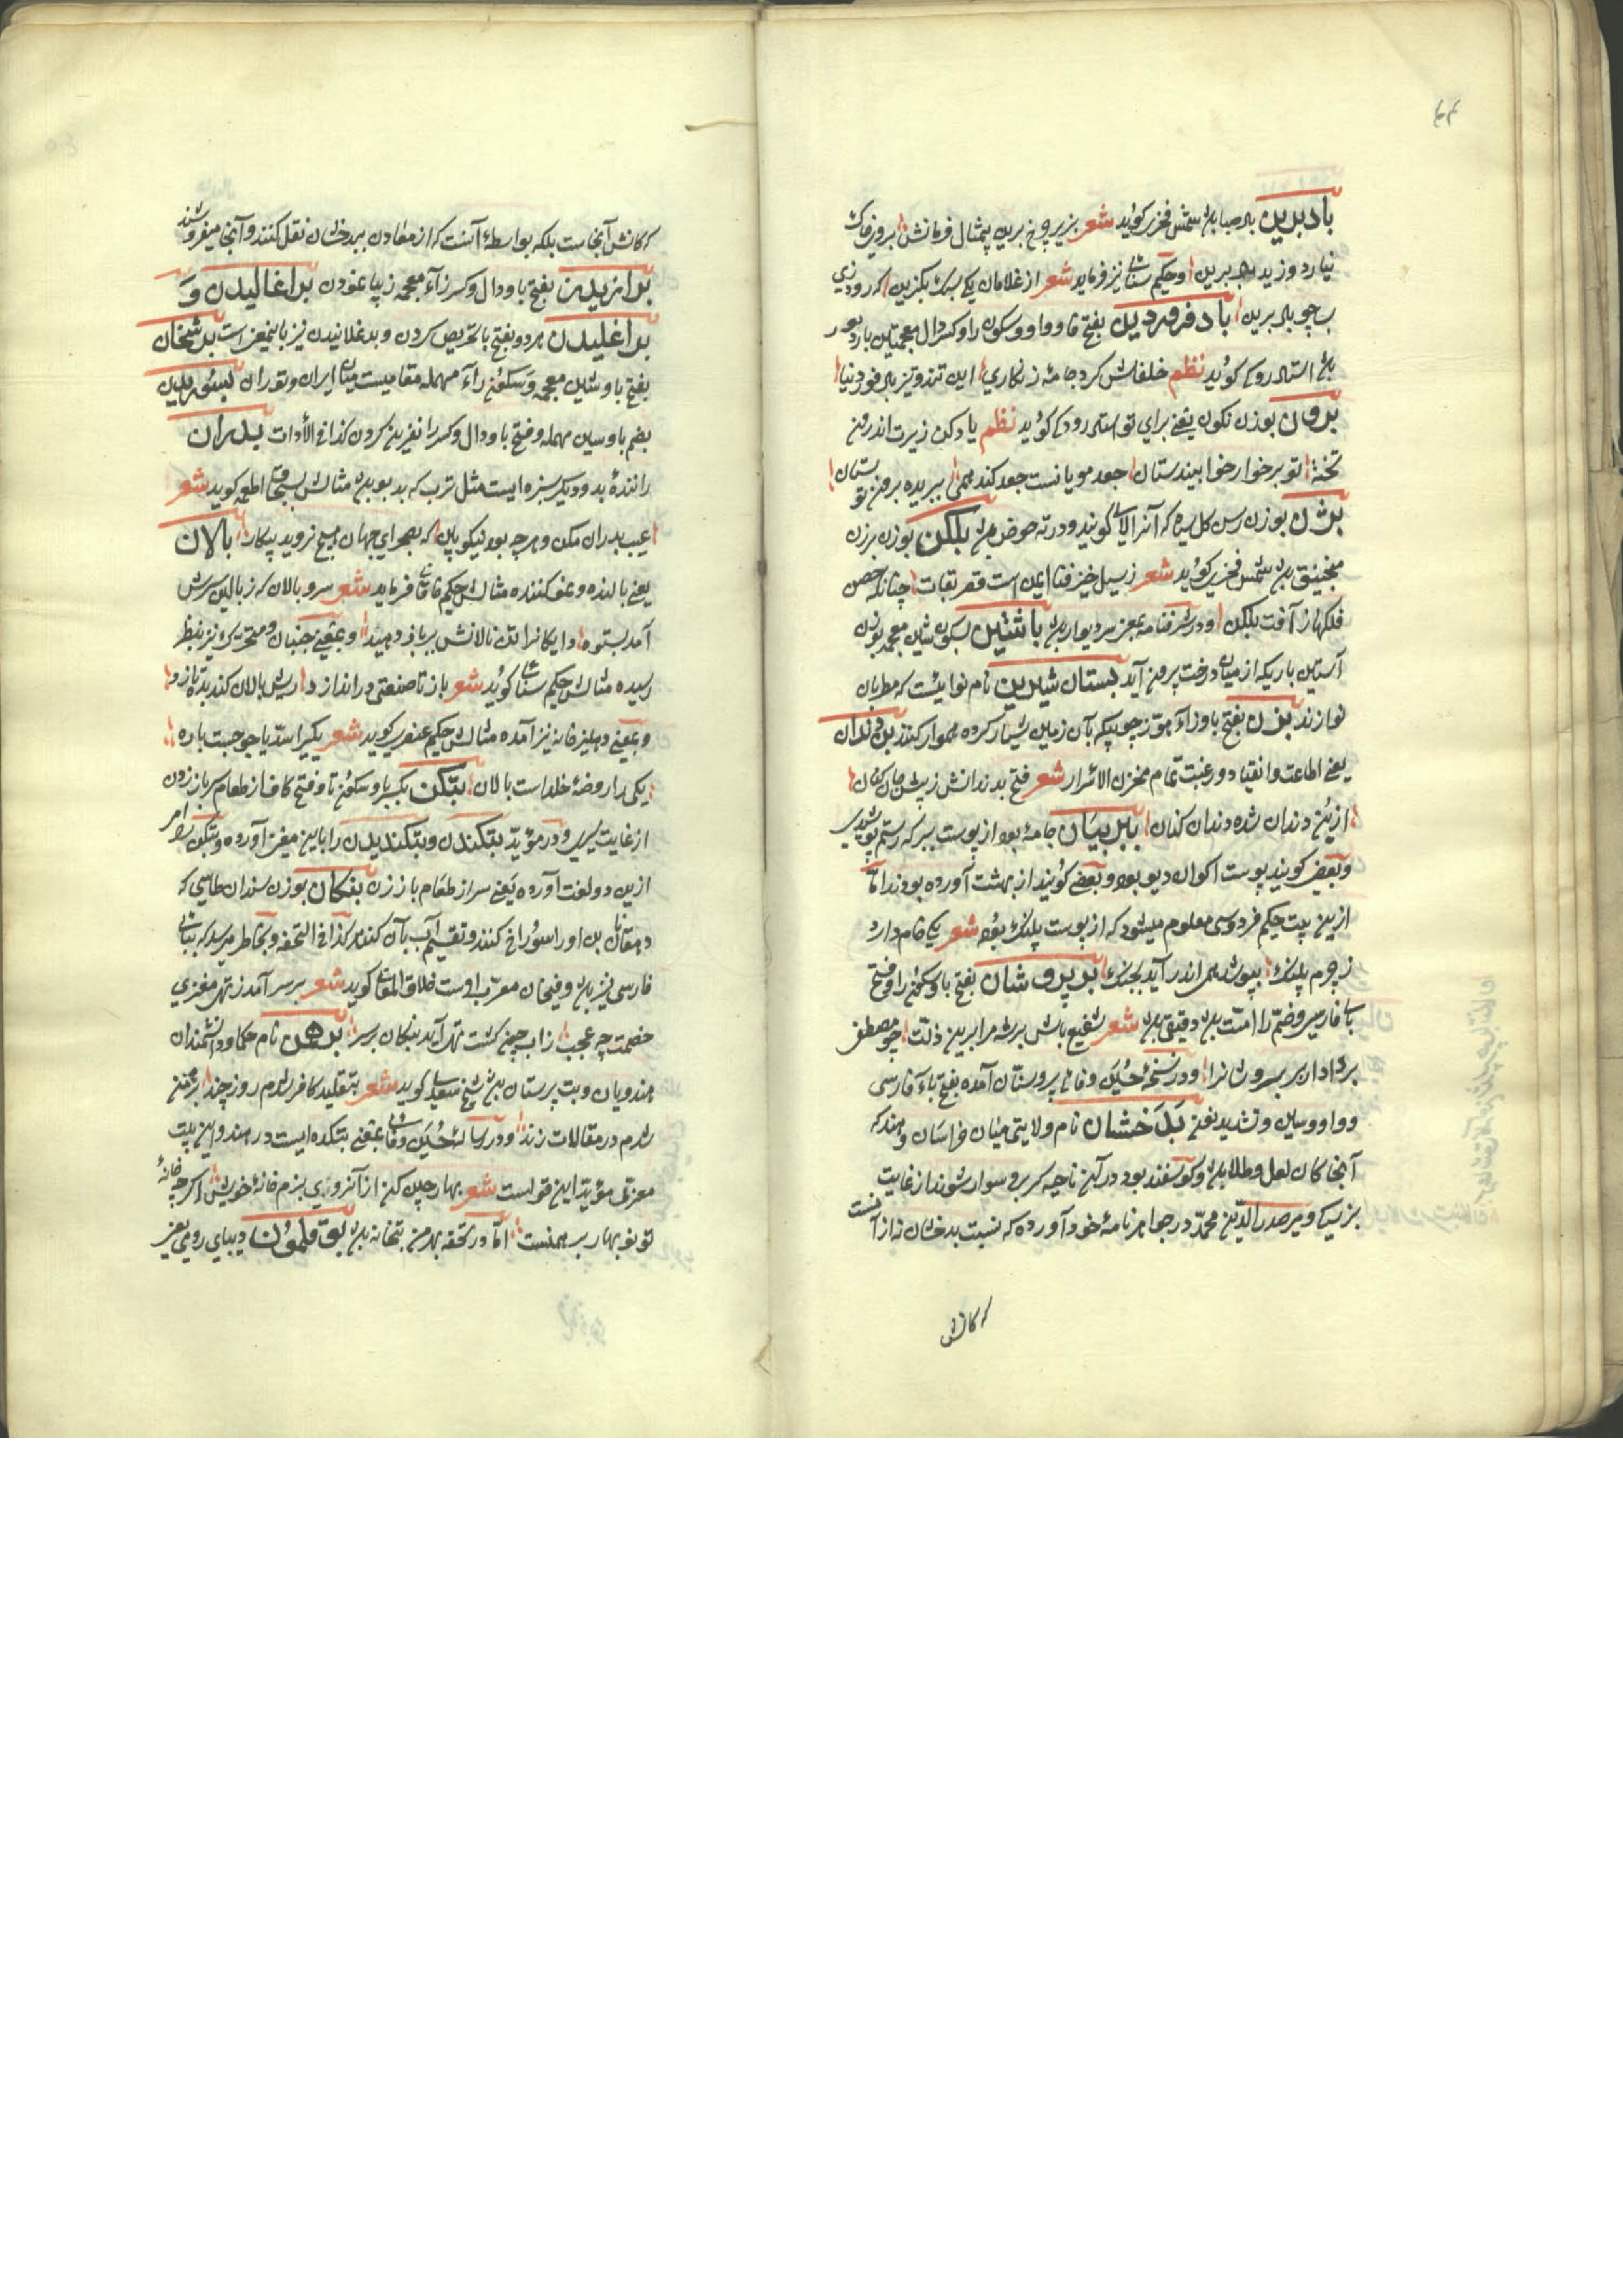 باد برین باد صبا باشد شمس فخری گوید شعر بزیر چرخ برین بیمثال فرمانش بروی خاک
نیارد وزید باد برین وحکیم سنائی نیز فرماید شعر از غلامان یکی سبک بگزین که رود زی
چو باد برین باد فروردین بفتح فا وواو وسکون را وکسر دال معجمتین باد دبور
باشد استاد رودکی گوید نظم خلفانش کرد جامه زنکاری این تند وتیز باد فرودینا
برون بوزن نکون یعنی برای تو استاد رودکی گوید نظم یاد کن زیرت اندرون
تخته تو برخوار خوابیده ستان جعد مویانت جعد کنده همی ببریده برون تو پستان
بژن بوزن رسن گل سیاه که آنرا لای گویند ودر ته حوض بلکن بوزن برزن
منجنیق باشد شمس فخری گوید شعر ز سیل خیز فنا ایمن است قصر بقات چنانکه حصن
فلکها ز آفت بلکن ودر شرفنامه بمعنی سر دیوار باشد باشنین بسکون شین معجمه بوزن
آستین باریکه از میان درخت برون آید بستان شیرین نام نوائیست که مطربان
نوازند بزن بفتح با وزاء هوز چوبیکه بآن زمین شیار کرده هموار کنند بن دندان
یعنی اطاعت وانقیاد ورغبت تمام مخزن الاسرار شعر فتح بدندانش ز پیش جان کنان
از بن دندان شده دندان کنان ببر بیان جامه بود از پوست ببر که رستم پوشیدی
وبعضی گویند پوست اکوان دیو بود وبعضی گویند از بهشت آورده بودند اما
ازین بیت حکیم فردوسی معلوم میشود که از پوست پلنک بود شعر یکی جامه دارد
ز چرم پلنک بپوشد همی اندر آید بجنک بربروشان بفتح با وسکون را وفتح
بای فارسی وضم را امت باشد دقیقی شعر شفیع باش بر شه مرا برین زلت چو مصطفی
بر دادار بربروشانرا ودر نسخهٔ حسین وفائی بروستان آمده بفتح باء فارسی
وواو وسین وتشدید نون بدخشان نام ولایتی میان خراسان وهند که
آنجا کان لعل وطلا باشد وگوسفند بود در آن ناحیه که برو سوار شوند از غایت
بزرگی ومیر صدر الدین محمد در جواهر نامهٔ خود آورده که نسبت بدخشان نه از آنست
که کانش
که کانش آنجاست بلکه بواسطهٔ آنست که از معادن ببدخشان نقل کنند وآنجا میفروشند
برازیدن بفتح با ودال وکسر زاء معجمه زیبا نمودن براغالیدن و
براغلیدن هر دو بفتح با تحریص کردن وبدغلانیدن نیز باینمعنی است برشخان
بفتح با وشین معجمه وسکون راء مهمله مقامیست میان ایران وتوران بسوریدن
بضم با وسین مهمله وفتح با ودال وکسر را نفرین کردن کذا فی الأدات بدران
رانندهٔ بد ودیگر سبزه ایست مثل ترب که بدبو بود مثالش بسحاق اطعمه گوید شعر
عیب بدران مکن وهرچه بود نیکو بین که بصحرای جهان هیچ نروید بیکار بالان
یعنی بالنده ونمو کننده مثالش حکیم خاقانی فرماید شعر سرو بالان که ز بالین سرش
آمد بستوه دایگانرا تن نالانش ببر باز دهید وبمعنی جنبان ومتحرک نیز بنظر
رسیده مثالش حکیم سنائی گوید شعر باز تا صنعتی در اندازد ریش بالان کند بتازد
وبمعنی دهلیز خانه نیز آمده مثالش حکیم عنصری گوید شعر یکی را سد یاجوجست باره
یکی را روضهٔ خلد است بالان بتکن بکسر با وسکون تا وفتح کاف از طعام سر باز زدن
از غایت سیری ودر مؤید بتکندن وبتکندیدن را باین معنی آورده وبتکن را امر
ازین دو لغت آورده یعنی سر از طعام باز زن بنکان بوزن سندان طاسی که
دهقانان بن او را سوراخ کنند وتقسیم آب بآن کنند کذا فی التحفه وبخاطر میرسد که ببای
فارسی نیز باشد وفنجان معرب اوست خلاق المعانی گوید شعر بر سر آمد ز تهی مغزی
خصمت چه عجب زاب چون گشت تهی آید بنکان بر سر برهمن نام حکما ودانشمندان
هندویان وبت پرستان باشد شیخ سعدی گوید شعر بتقلید کافر شدم روز چند برهمن
شدم در مقالات زند ودر رسالهٔ حسین وفائی بمعنی بتکده ایست در هند واین بیت
معزی مؤید این قولست شعر بهار چین کن از آنروی بزم خانهٔ خویش اگرچه خانهٔ
تو نوبهار برهمنست اما در تحفه بهر من بتخانه باشد بوقلمون دیبای رومی یعنی